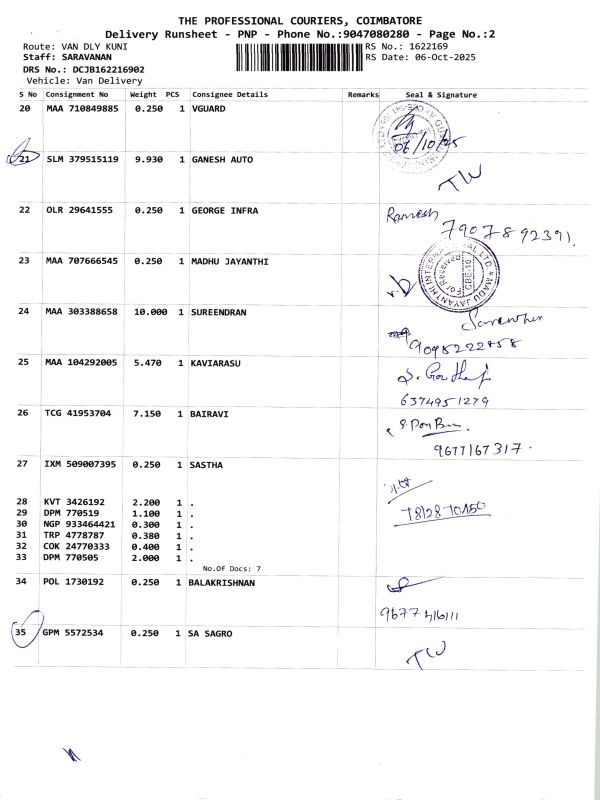 THE PROFESSIONAL COURIERS, COIMBATORE
Delivery Runsheet - PNP - Phone No.:9047080280 - Page No.:2
Route: VAN DLY KUNI
RS No.: 1622169
Staff: SARAVANAN
RS Date: 06-Oct-2025
DRS No.: DCJB162216902
Vehicle: Van Delivery
S No Consignment No Weight PCS Consignee Details Remarks Seal & Signature
20 MAA 710849885 0.250 1 VGUARD
06/10/25
21 SLM 379515119 9.930 1 GANESH AUTO
TW
22 OLR 29641555 0.250 1 GEORGE INFRA
Ramesh
7907892391
23 MAA 707666545 0.250 1 MADHU JAYANTHI
MADU JAYANTHI INTERNATIONAL LTD.
For Received
CBE.19
24 MAA 303388658 10.000 1 SUREENDRAN
25 MAA 104292005 5.470 1 KAVIARASU
6374951279
26 TCG 41953704 7.150 1 BAIRAVI
9677167317.
27 IXM 509007395 0.250 1 SASTHA
28 KVT 3426192 2.200 1 .
29 DPM 770519 1.100 1 .
30 NGP 933464421 0.300 1 .
31 TRP 4778787 0.380 1 .
32 COK 24770333 0.400 1 .
33 DPM 770505 2.000 1 .
No.Of Docs: 7
34 POL 1730192 0.250 1 BALAKRISHNAN
35 GPM 5572534 0.250 1 SA SAGRO
TW